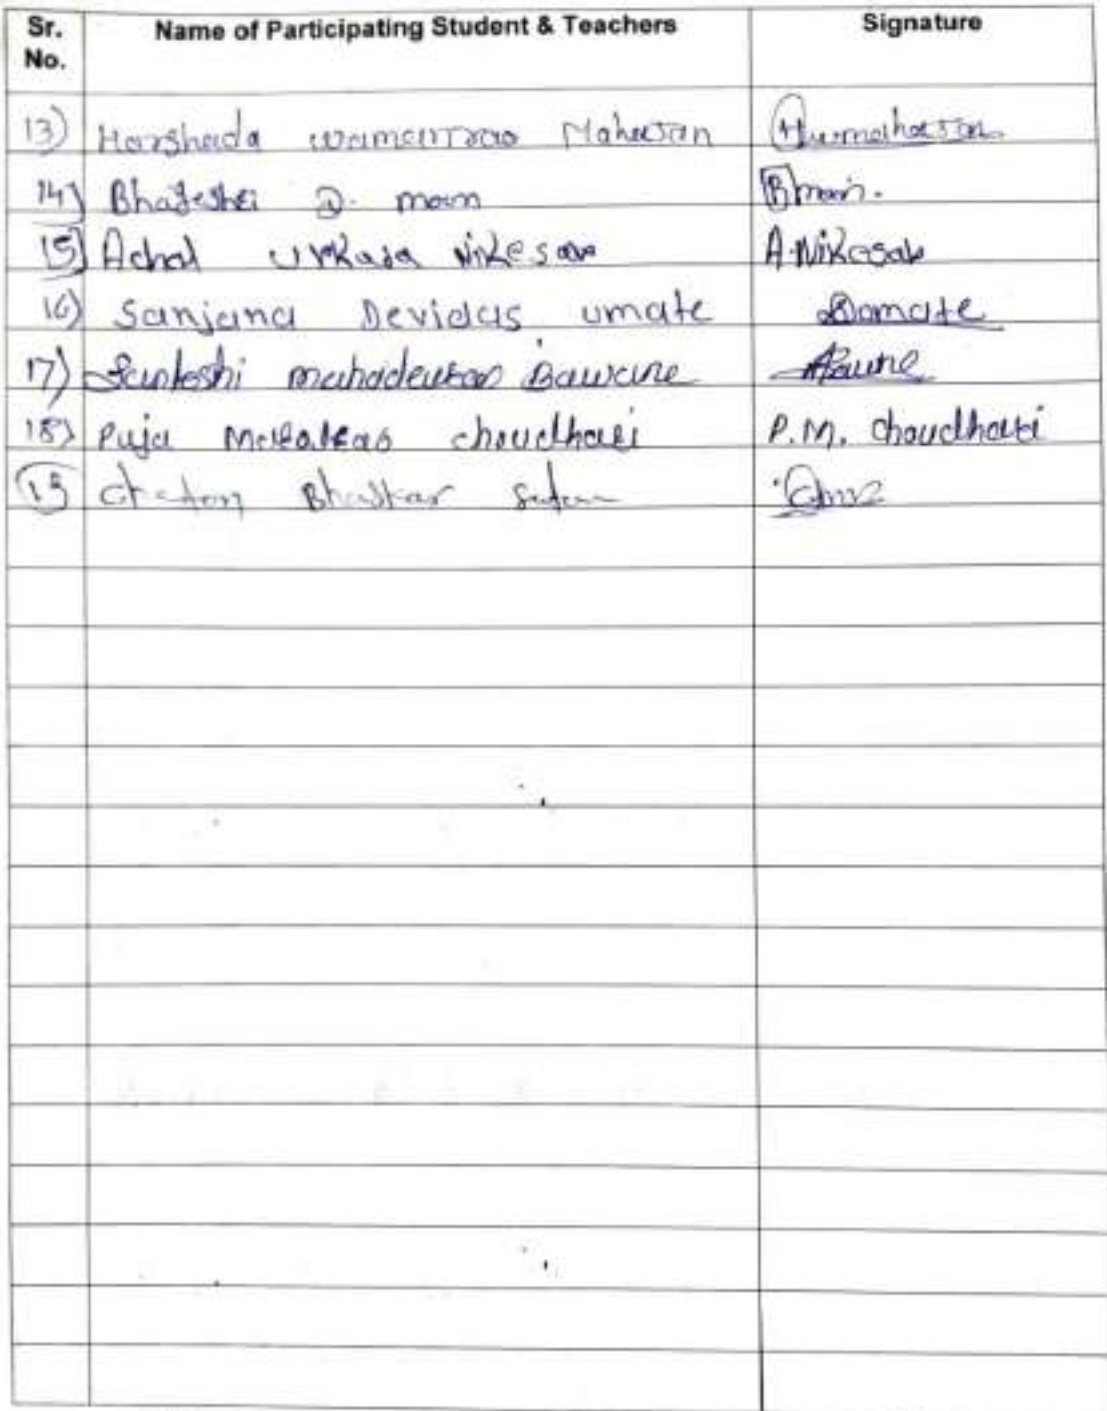 Sr. No. Name of Participating Student & Teachers Signature
13) Harshada wamanrao Mahajan
14) Bhageshri D. mam Bmam.
15) Achal Urkada Nikesar A.Nikesar
16) Sanjana Devidas umate
17) Santoshi mahadevrao Bawane
18) Puja choudhari P.M. choudhari
19 Chetan Bhaskar